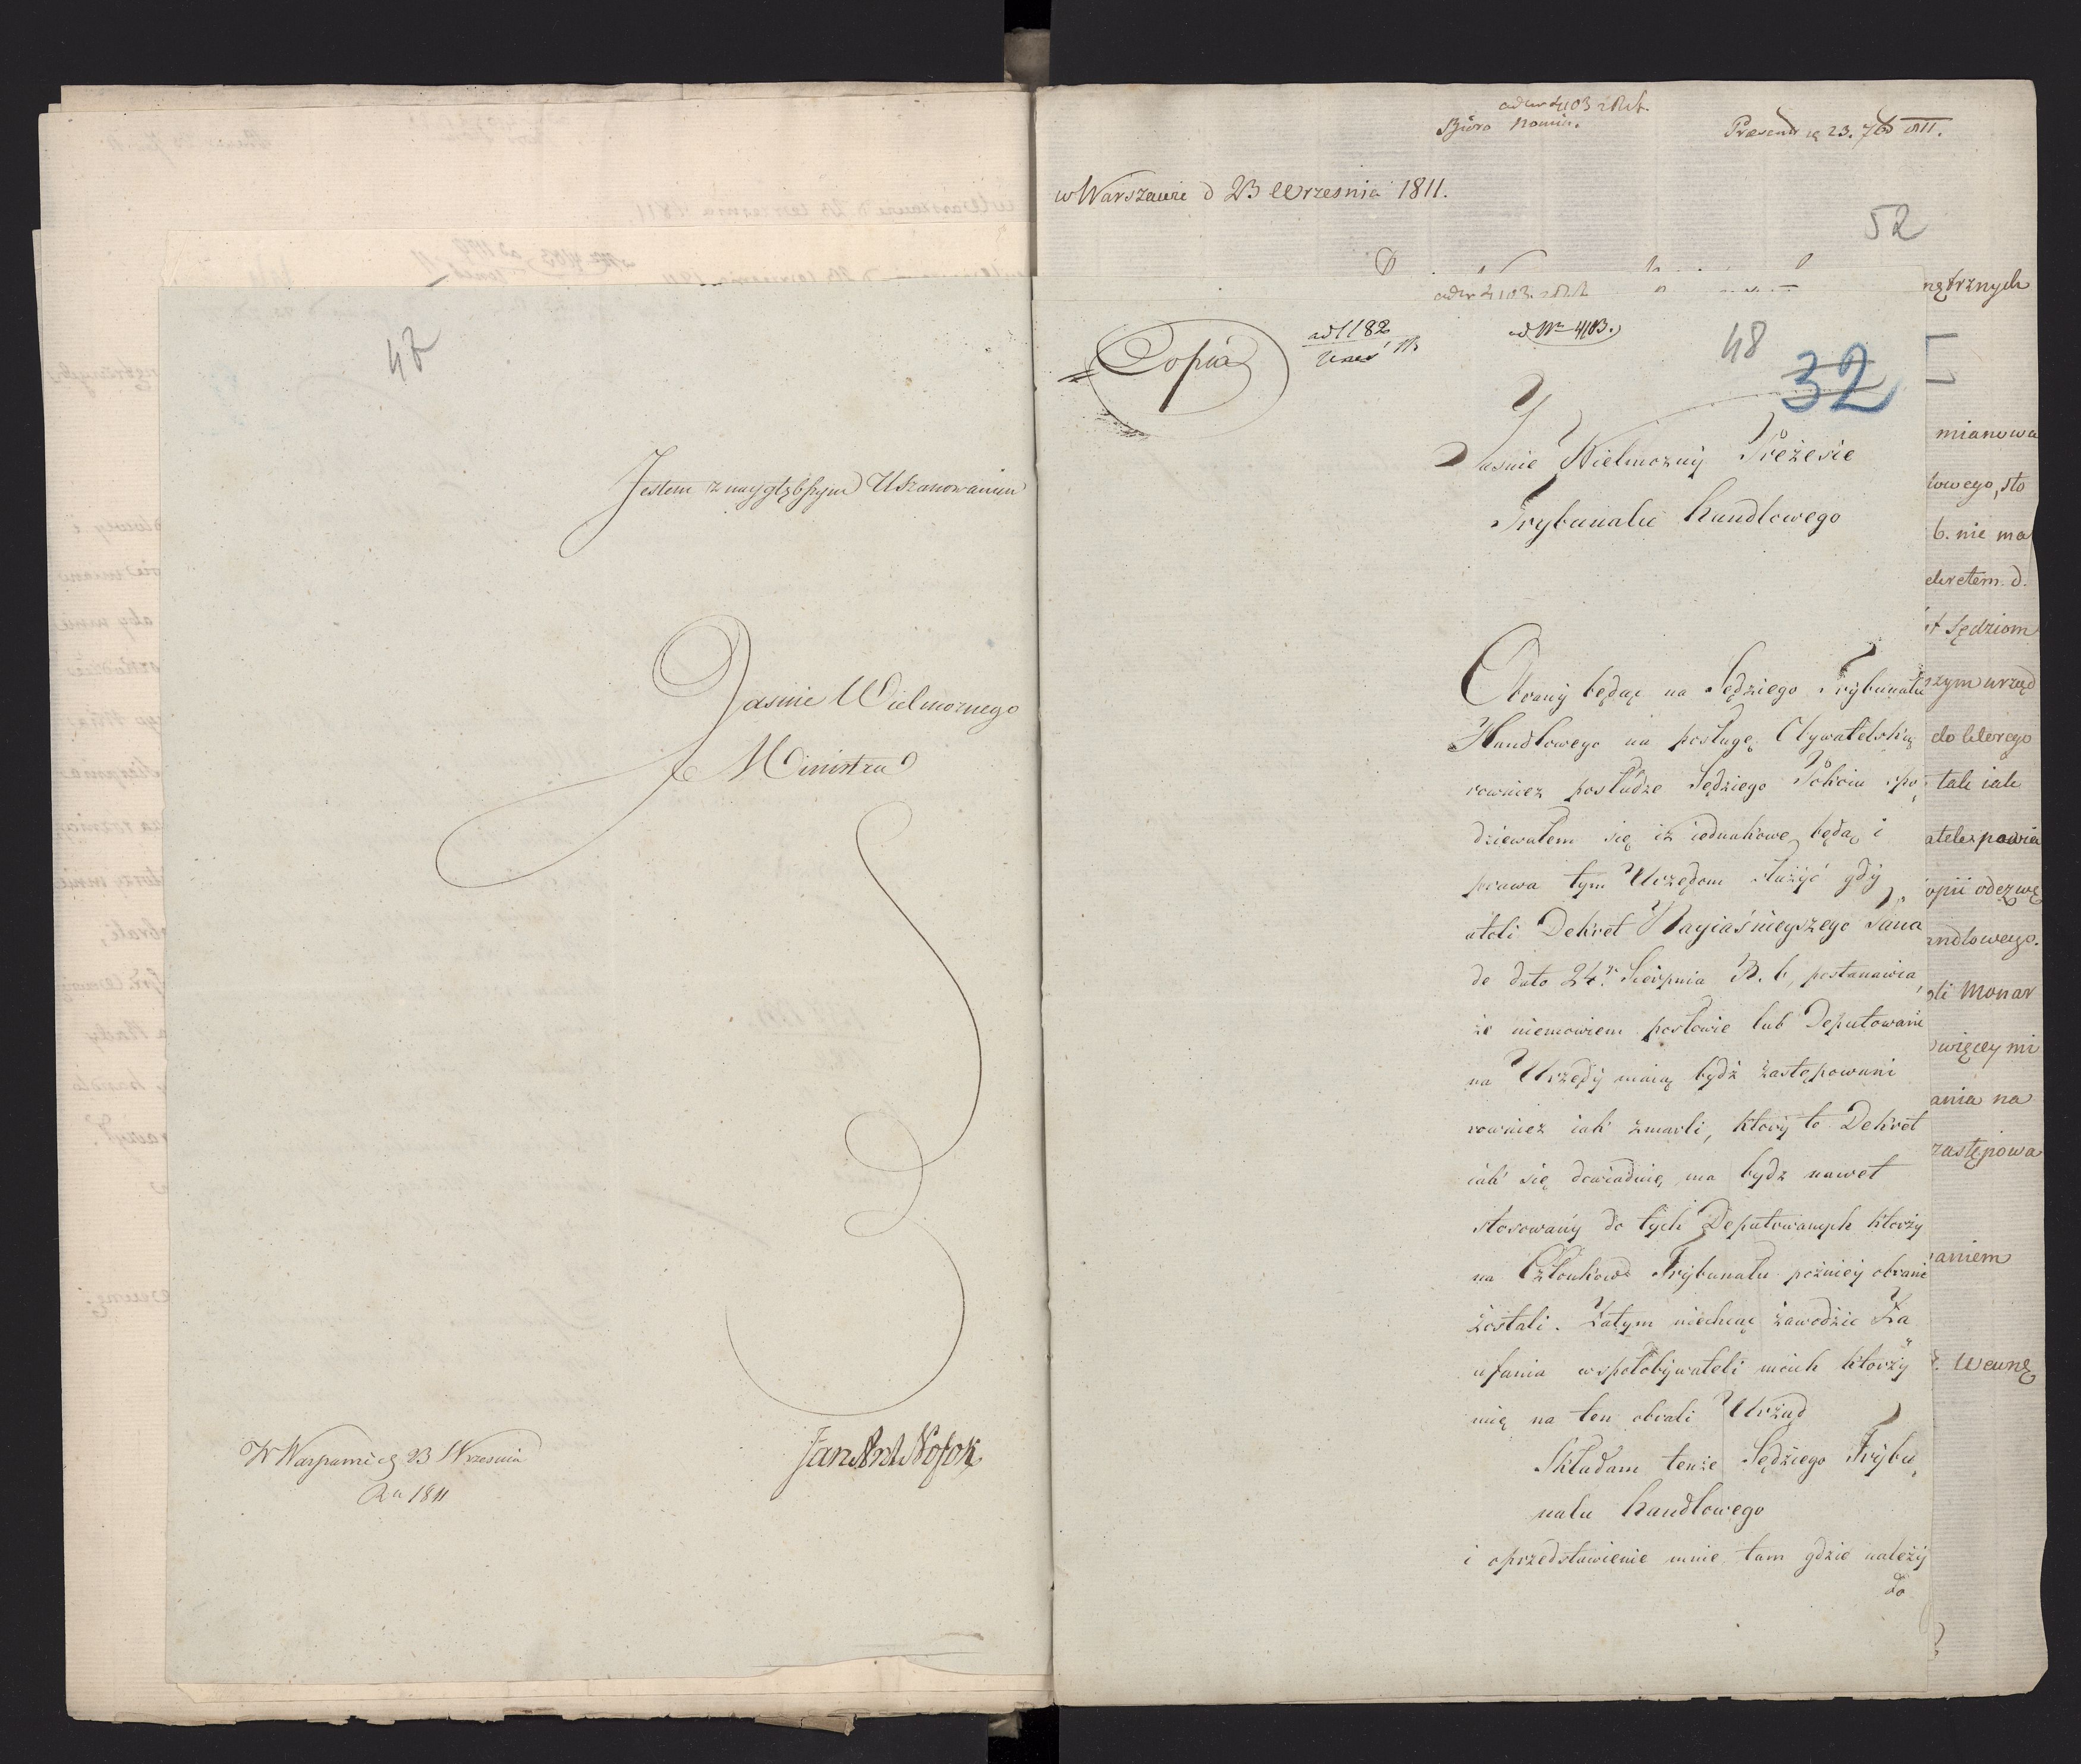 47
Jestem z naygłębszym Uszanowaniem
Jasnie Wielmoznego
Ministra
W Warszawie 23 Wrzesnia
Ru 1811
Jan Ant
Biuro Nomin.
23. 7b 1811.
w Warszawie d 23 Wrzesnia 1811.
52
Copia
ad 1182
ad Nr 4103.
48
32
Jasnie Wielmozny Prezesie
Trybunalu handlowego
Obrany będąc na Sędziego Trybunalu
Handlowego na posługę Obywatelską
rowniez posłudze Sędziego Pokoiu spo
dziewałem się iż iednakowe będą i
prawa tym Urzędom służyć gdy
atoli Dekret Nayiaśnieyszego Pana
de dato 24 Sierpnia R. b. postanawia,
że niemowiem posłowie lub Deputowani
na Urzędy maią bydź zastępowani
rowniez iak zmarli, ktory to Dekret
iak się dowiaduię ma bydz nawet
stosowany do tych Deputowanych ktorzy
na Członkow Trybunalu pozniey obrani
zostali. Zatym niechcąc zawodzic Za
ufania wspołobywateli moich ktorzy
mię na ten obrali Urząd
Składam tenze Sędziego Trybu
nalu handlowego
i oprzedstawienie mnie tam gdzie należy
do
nętrznych
mianowa
lowego, sto
b. nie ma
ekretem d.
Sędziom
szym urząd
do ktorego
tak iak
atele powia
opii odezwę
andlowego.
oli Monar
więcey mi
ania na
zastępowa
aniem